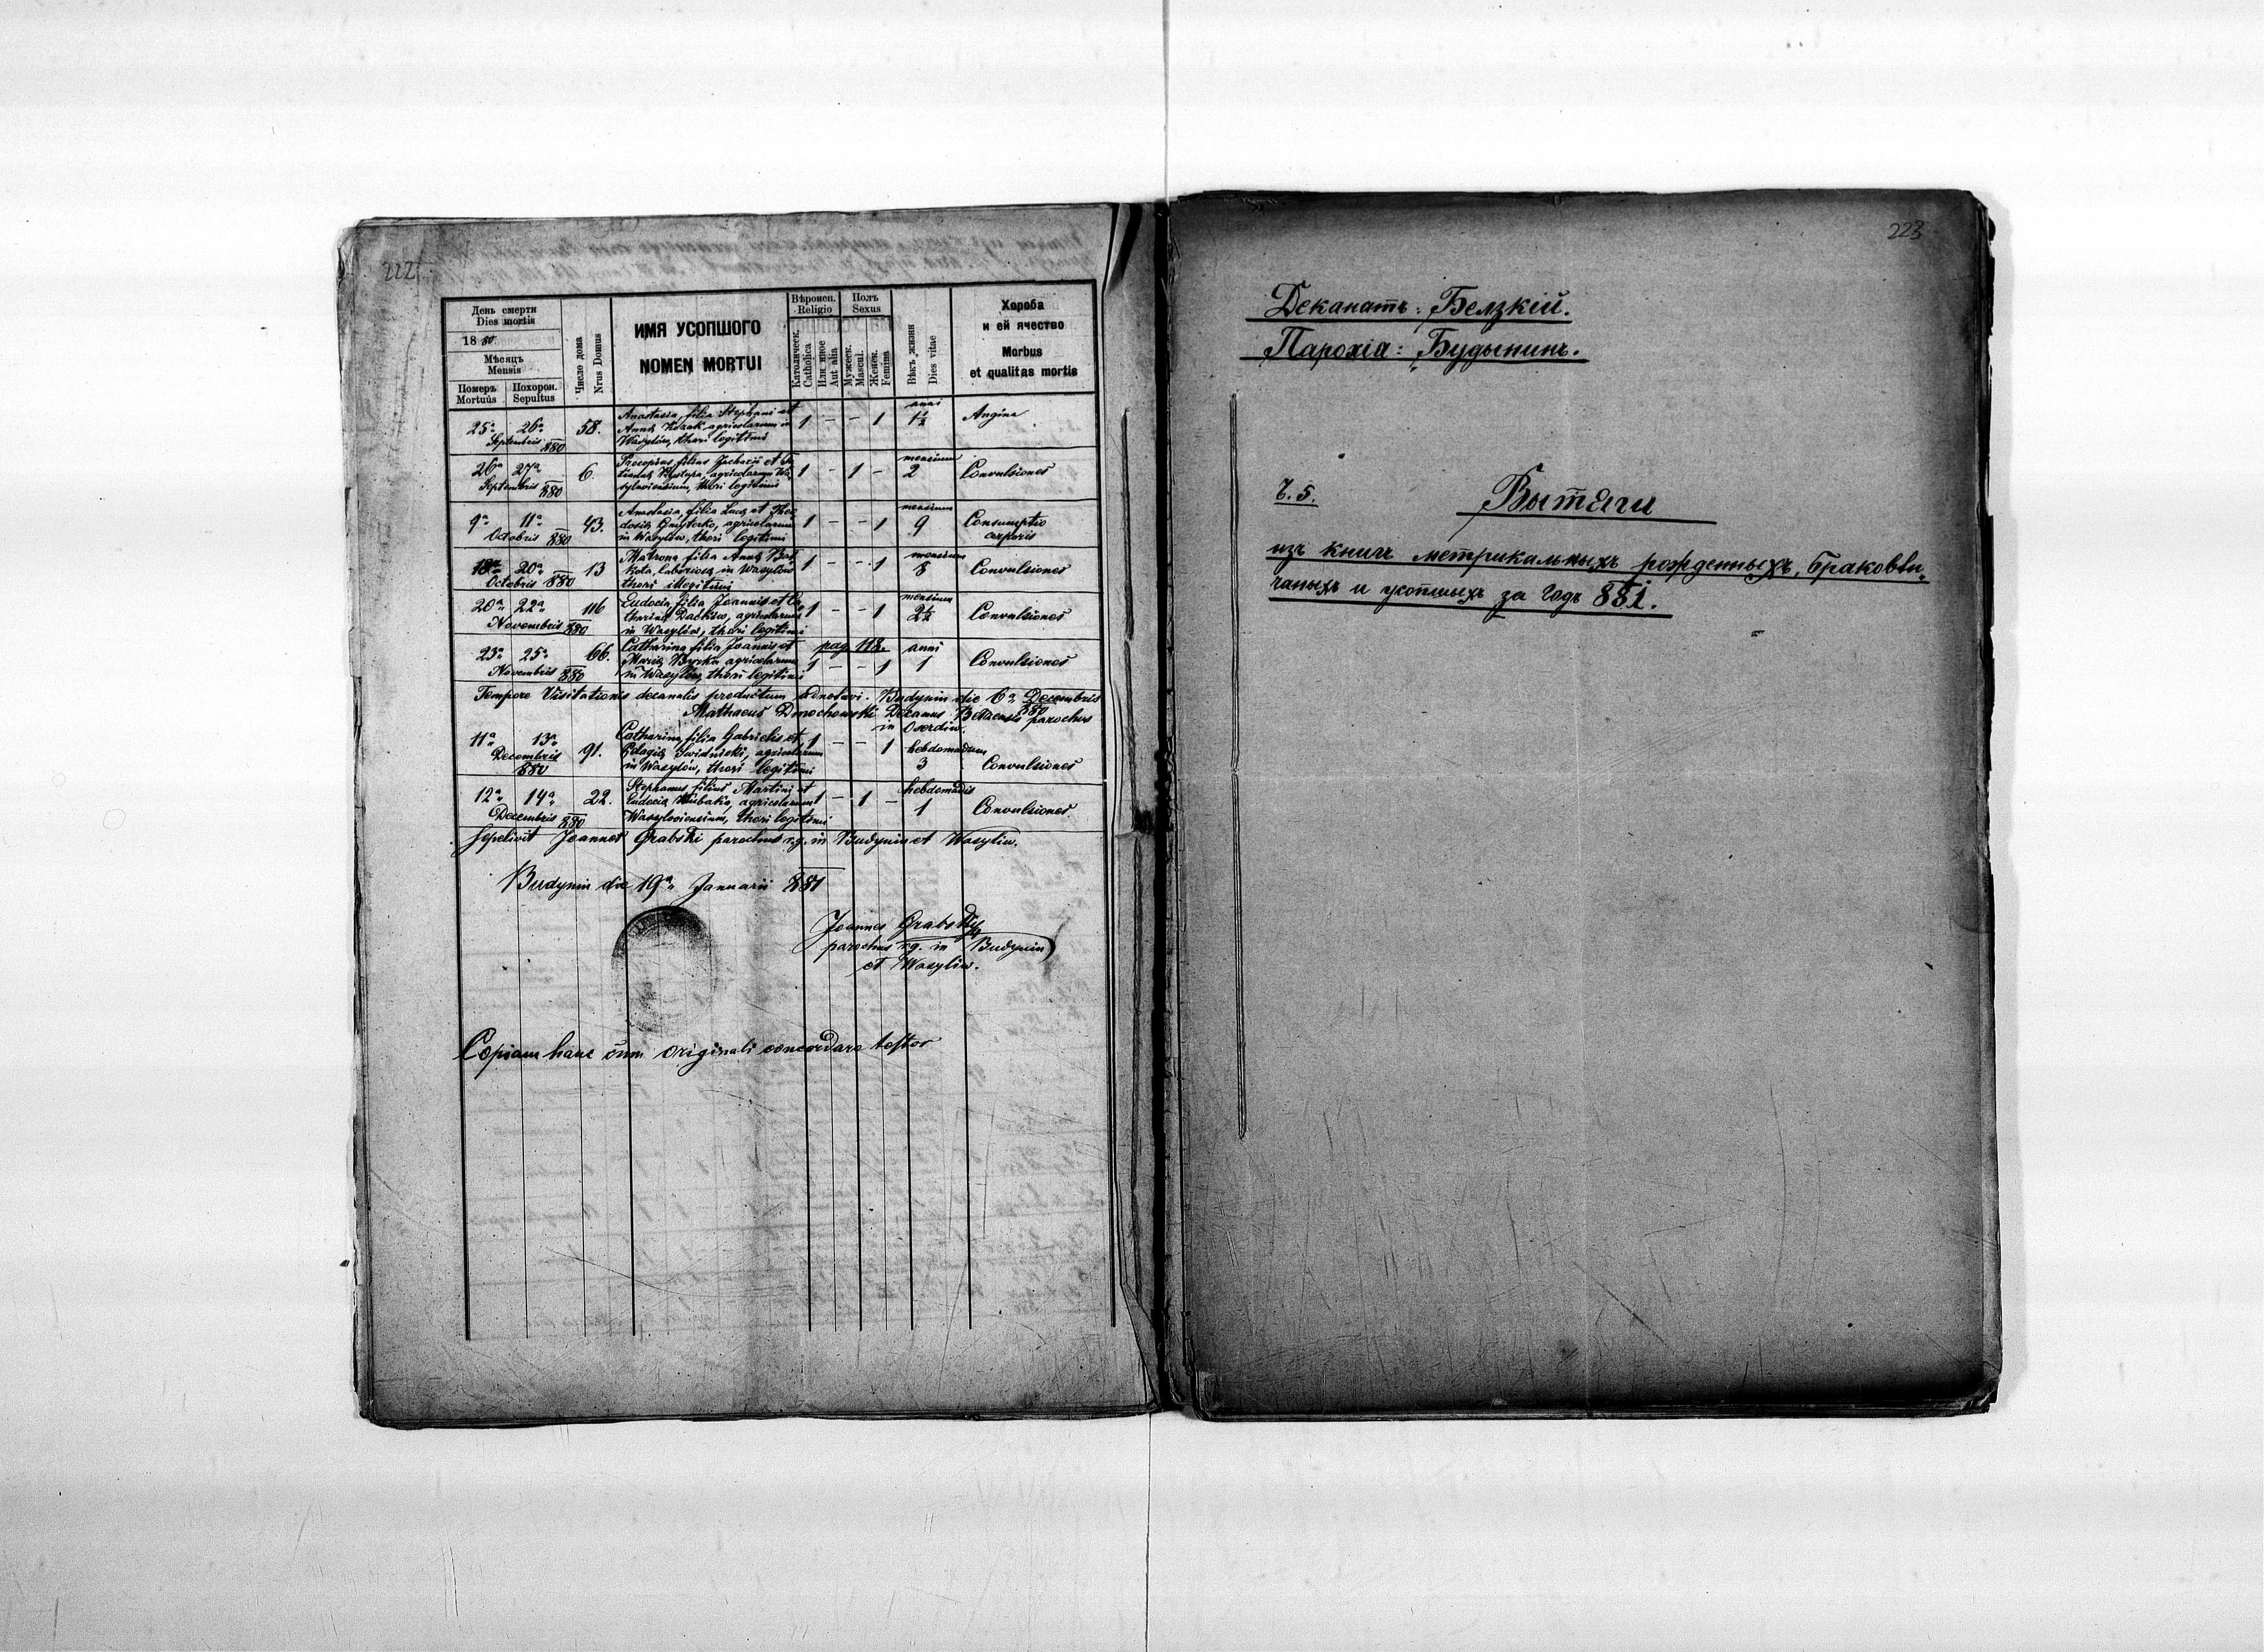 222.
День смерти
Dies mortis
18 80
Мѣсяць
Mensis
Померъ
Mortuus
Похорон.
Sepultus
Число дома
Nrus Domus
ИМЯ УСОПШОГО
NOMEN MORTUI
Вѣроисп.
Religio
Католическ.
Catholica
Или иное
Aut alia
Полъ
Sexus
Мужеск.
Mascul.
Женск.
Femina
Вѣкъ жизни
Dies vitae
Хороба
и ей ячество
Morbus
et qualitas mortis
25a 26a Septembris 880 58.
Anastasia, filia Stephani et
Annae Kozak agricolarum in
Wasylów, thori legitimi
1 — — 1 anni 1½ Angina
26a 27a Septembris 880 6.
Procopius, filius
agricolarum Wa-
syloviensium, thori legitimi
1 — 1 — mensium 2 Convulsiones
9a 11a Octobris 880 43.
Anastasia, filia Lucae et Theo-
dosiae agricolarum
in Wasylów, thori legitimi
1 — — 1 mensium 9 Consumptio
corporis
18a 20a Octobris 880 13
Matrona filia Annae
in Wasylów
thori illegitimi
1 — — 1 mensium 8 Convulsiones
20a 22a Novembris 880 116
Eudocia, filia Joannis et Ca-
tharinae Dacków, agricolarum
in Wasylów, thori legitimi
1 — — 1 mensium 2½ Convulsiones
23a 25a Novembris 880 66.
Catharina filia Joannis et
Mariae agricolarum
in Wasylów, thori legitimi
pag 118.
1 — — 1 anni 1 Convulsiones
Tempore Visitationis decanalis productum adnotavi. Budynin die 6a Decembris
880
Mathaeus Dmochowski Decanus Belzensis parochus
in Oserdiw.
11a 13a Decembris 880 91.
Catharina, filia Gabrielis et
Pelagiae Swidnicki, agricolarum
in Wasylów, thori legitimi
1 — — 1 hebdomadum 3 Convulsiones
12a 14a Decembris 880 22.
Stephanus filius Martini et
Eudociae agricolarum
Wasyloviensium, thori legitimi
1 — 1 — hebdomadis 1 Convulsiones.
Sepelivit Joannes Grabski parochus r.g. in Budynin et Wasyliw.
Budynin die 19a Januarii 881
Joannes Grabski
parochus r.g. in Budynin
et Wasyliw.
Copiam hanc cum originali concordare testor
223
Деканатъ: Белзкій.
Парохіа: Будынинъ.
Ч. 5.
Вытяги
изъ книгъ метрикальныхъ рожденныхъ, браковѣн-
чаныхъ и усопшыхъ за годъ 881.